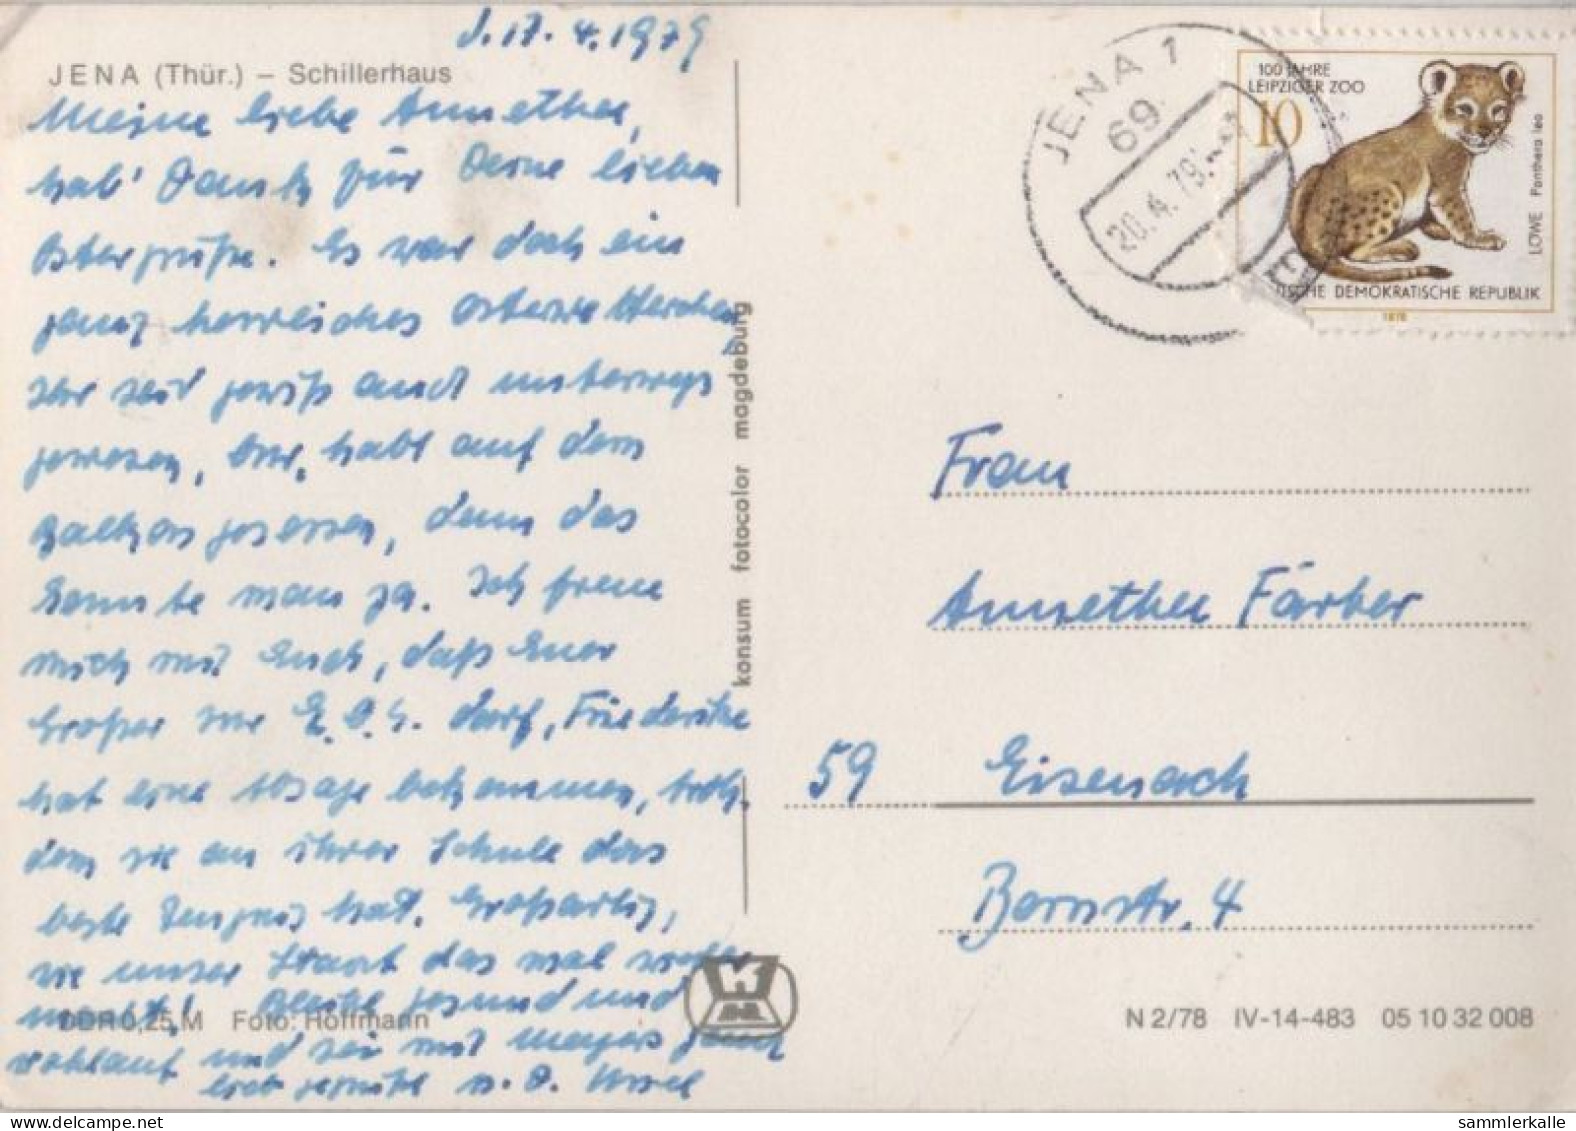 d. 17. 4. 1979
JENA (Thür.) – Schillerhaus
Meine liebe Annethee,
hab' Dank für Deine lieben
Ostergrüße. Es war doch ein
ganz herrliches Osterwetterchen,
Ihr seid gewiß auch unterwegs
gewesen, bzw. habt auf dem
Balkon gesessen, denn das
konnte man ja. Ich freue
mich mit Euch, daß Euer
Großer zur E.O.S. darf, Friederike
hat eine Absage bekommen, trotz-
dem sie an ihrer Schule das
beste Zeugnis hat. Großartig,
wie unser Staat das mal wieder
macht! Bleibt gesund und
wohlauf und sei mit
lieb gegrüßt v. D. Ursel
DDR 0,25 M Foto: Hoffmann
konsum fotocolor magdeburg
JENA 1
69
20.4.79
100 JAHRE
LEIPZIGER ZOO
10
LÖWE Panthera leo
DEMOKRATISCHE REPUBLIK
1978
Frau
Annethee Färber
59 Eisenach
Bornstr. 4
N 2/78 IV-14-483 05 10 32 008
sammlerkalle